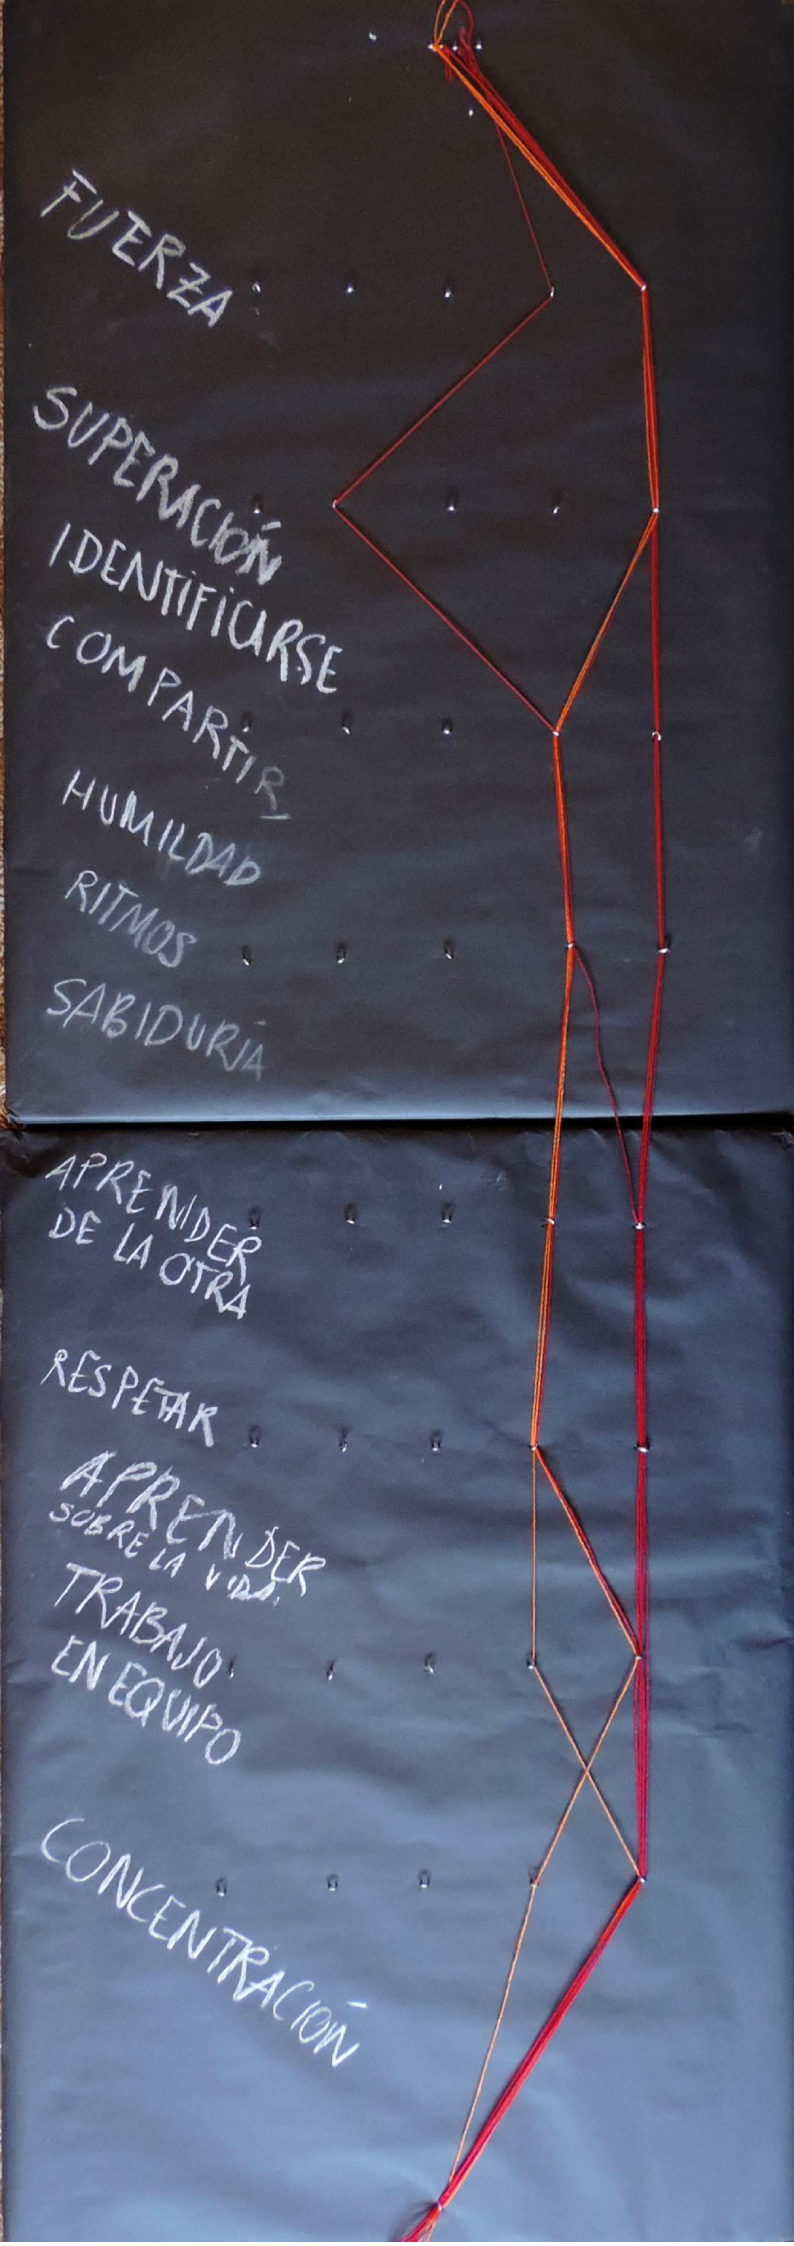 FUERZA
SUPERACIÓN
IDENTIFICARSE
COMPARTIR
HUMILDAD
RITMOS
SABIDURÍA
APRENDER
DE LA OTRA
RESPETAR
APRENDER
SOBRE LA VIDA.
TRABAJO
EN EQUIPO
CONCENTRACIÓN